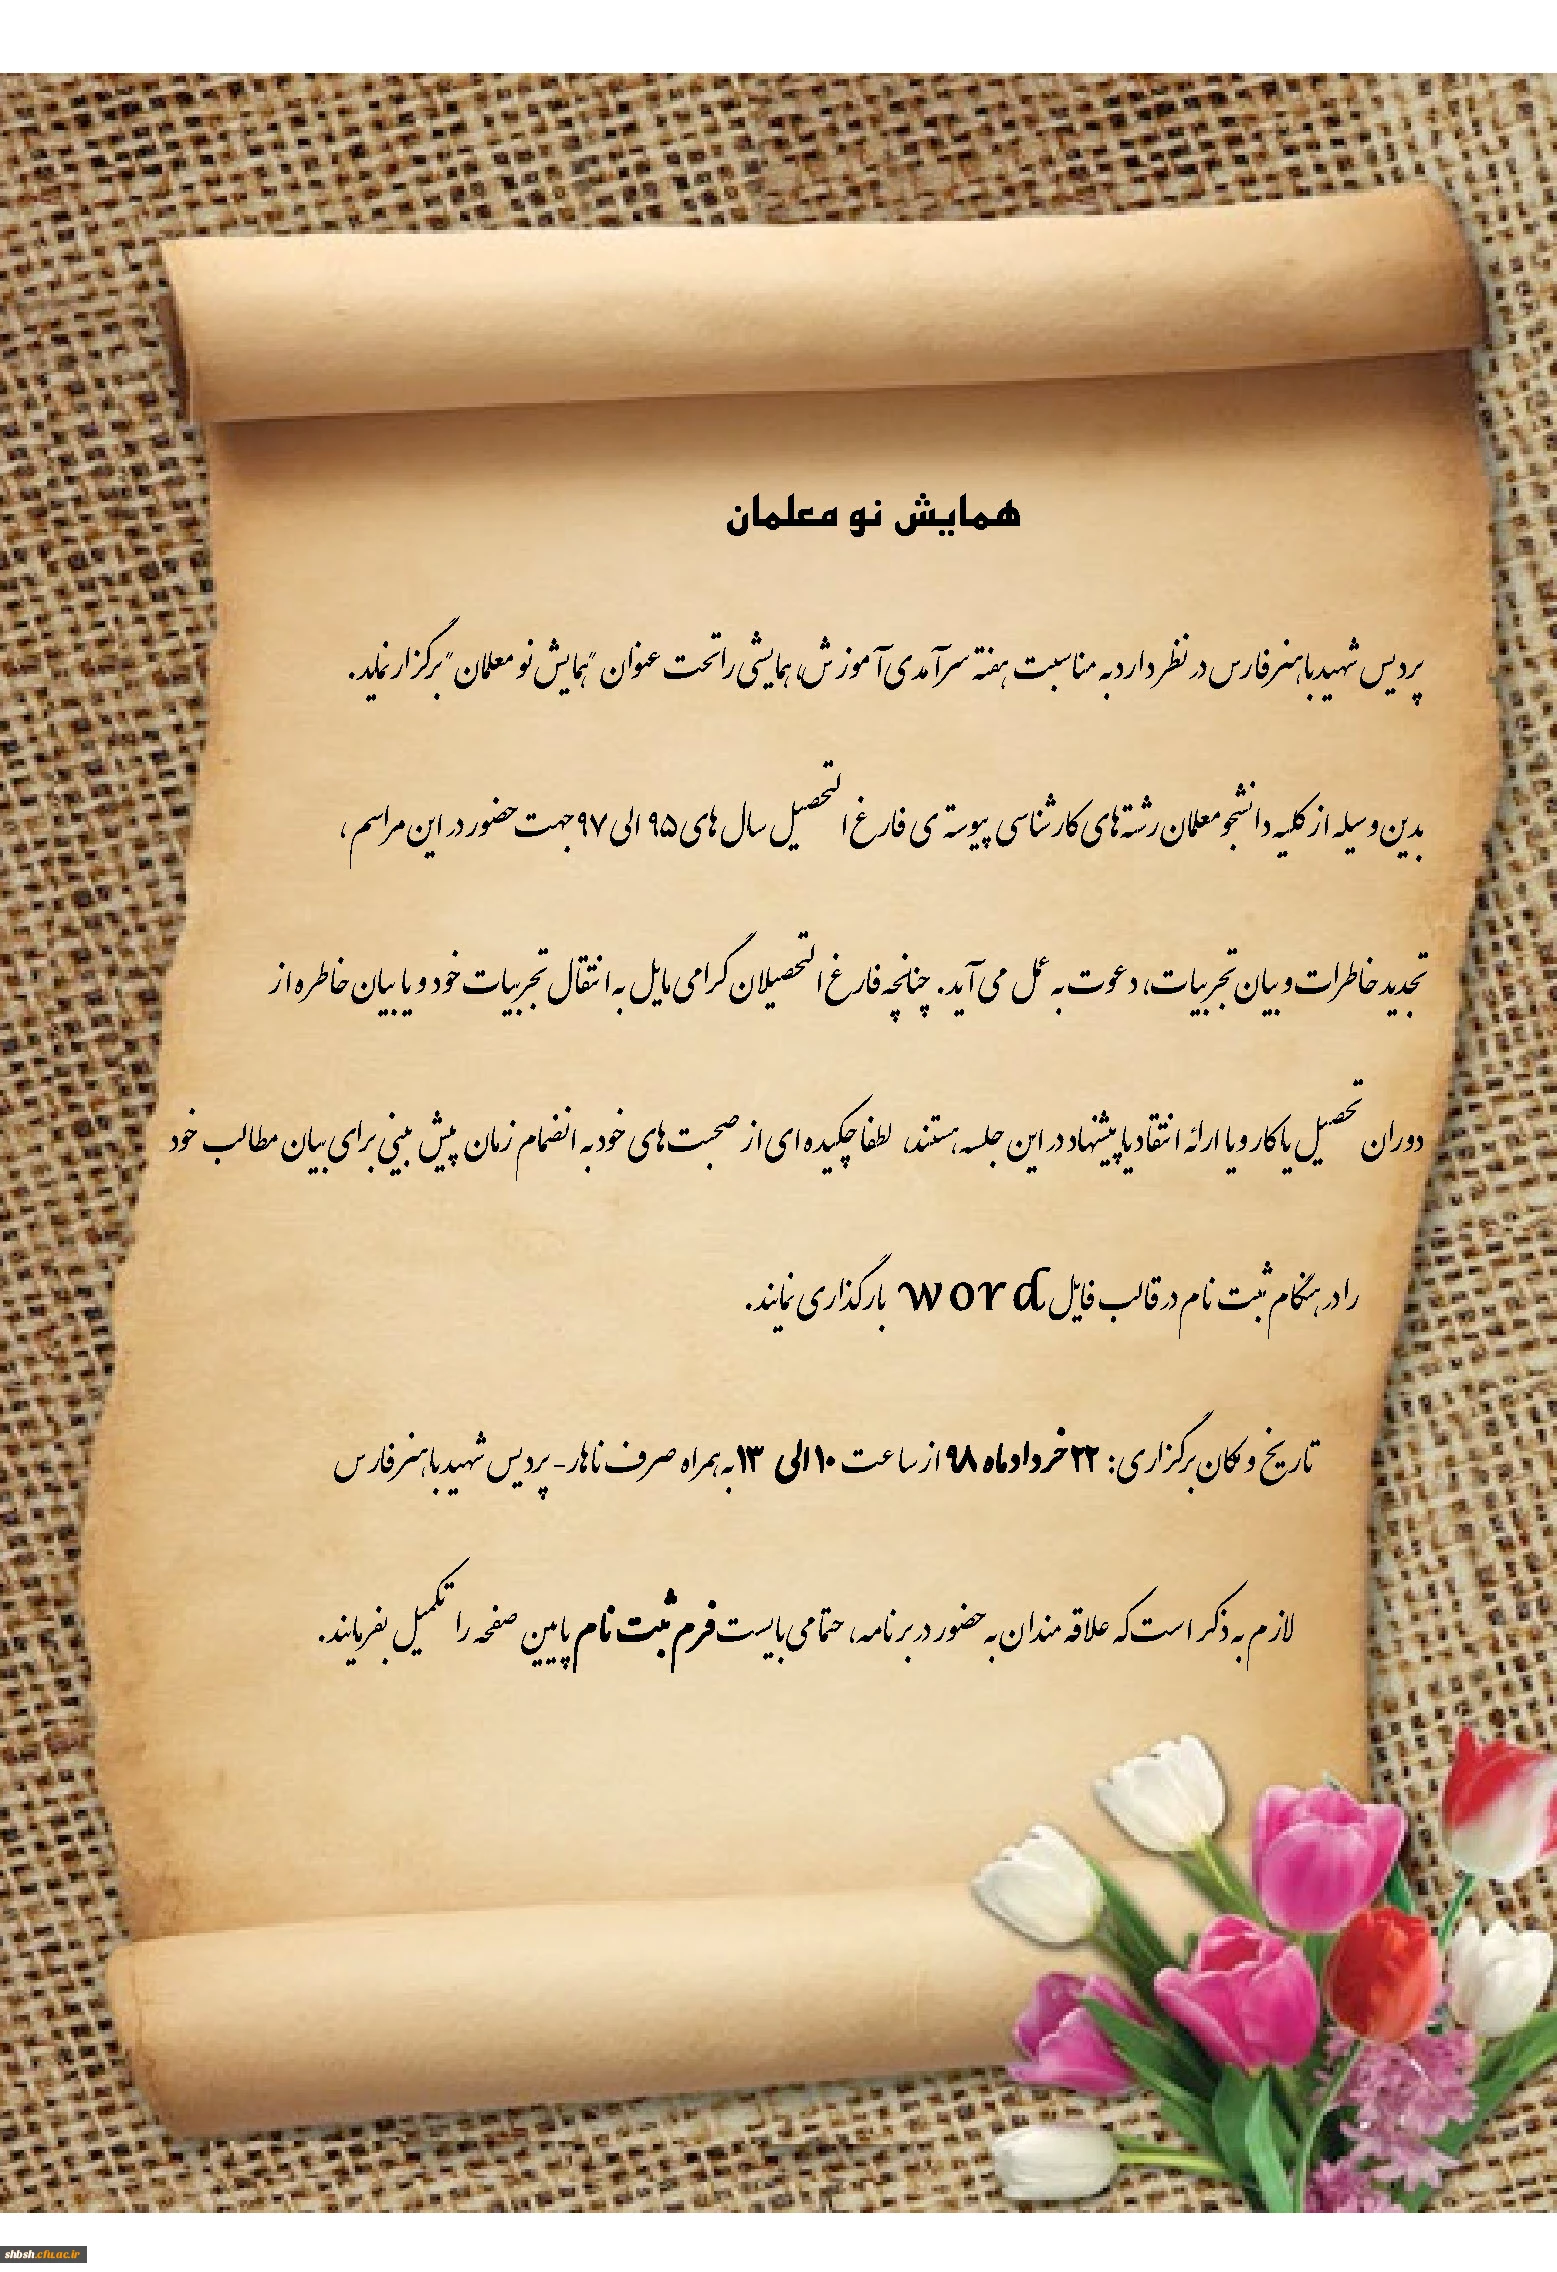 همایش نو معلمان
پردیس شهید باهنر فارس در نظر دارد به مناسبت هفته سرآمدی آموزش، همایشی را تحت عنوان "همایش نو معلمان" برگزار نماید.
بدین وسیله از کلیه دانشجو معلمان رشته های کارشناسی پیوسته ی فارغ التحصیل سال های ۹۵ الی ۹۷ جهت حضور در این مراسم،
تجدید خاطرات و بیان تجربیات، دعوت به عمل می آید. چنانچه فارغ التحصیلان گرامی مایل به انتقال تجربیات خود و یا بیان خاطره از
دوران تحصیل یا کار و یا ارائه انتقاد یا پیشنهاد در این جلسه هستند، لطفا چکیده ای از صحبت های خود به انضمام زمان پیش بینی برای بیان مطالب خود
را در هنگام ثبت نام در قالب فایل word بارگذاری نمایند.
تاریخ و مکان برگزاری: ۲۲ خرداد ماه ۹۸ از ساعت ۱۰ الی ۱۳ به همراه صرف ناهار- پردیس شهید باهنر فارس
لازم به ذکر است که علاقه مندان به حضور در برنامه، حتما می بایست فرم ثبت نام پایین صفحه را تکمیل بفرمایند.
shbsh.cfu.ac.ir